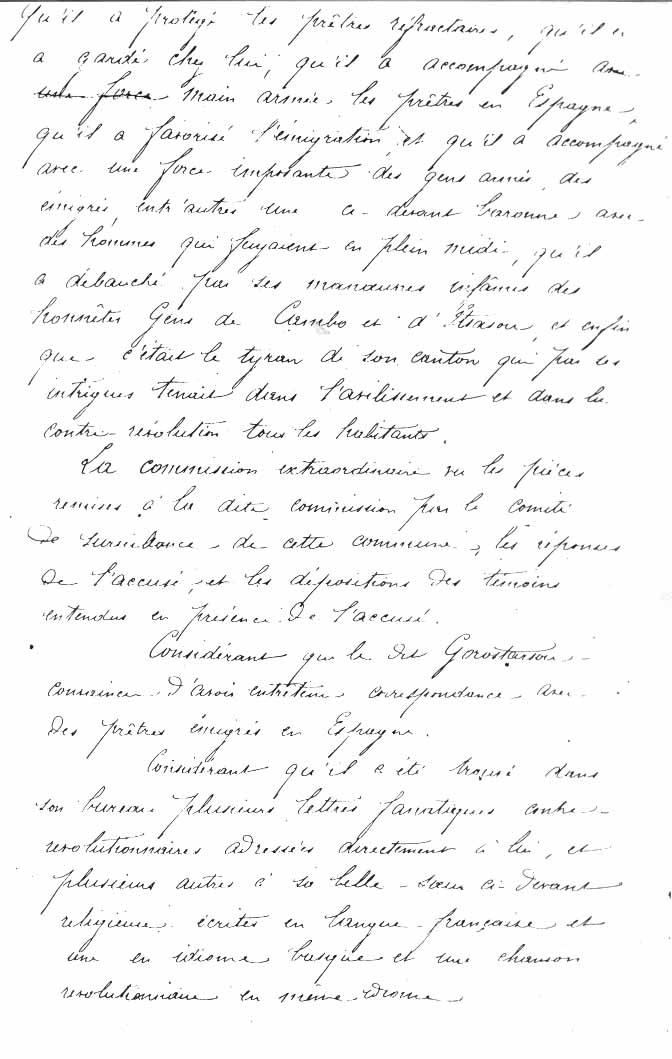 qu'il a protégé les prêtres réfractaires, qu'il
a gardé chez lui, qu'il a accompagné
une force main armée les prêtres en Espagne,
qu'il a favorisé l'émigration, et qu'il a accompagné
avec une force imposante des gens armés, des
émigrés, entr'autres une ci-devant baronne avec
des hommes qui fuyaient en plein midi, qu'il
a débauché par ses manœuvres infâmes des
honnêtes gens de Cambo et d'Itxasou, et enfin
que c'était le tyran de son canton qui par ses
intrigues tenait dans l'avilissement et dans la
contre-révolution tous les habitants.
La commission extraordinaire vu les pièces
remises à la dite commission par le comité
de surveillance de cette commune, les réponses
de l'accusé, et les dépositions des témoins
entendus en présence de l'accusé.
Considérant que le dit Gorostarsou
convaincu d'avoir entretenu correspondance avec
des prêtres émigrés en Espagne.
Considérant qu'il a été trouvé dans
son bureau plusieurs lettres fanatiques contre-
révolutionnaires adressées directement à lui, et
plusieurs autres à sa belle-sœur ci-devant
religieuse écrites en langue française et
une en idiome basque et une chanson
révolutionnaire en même idiome